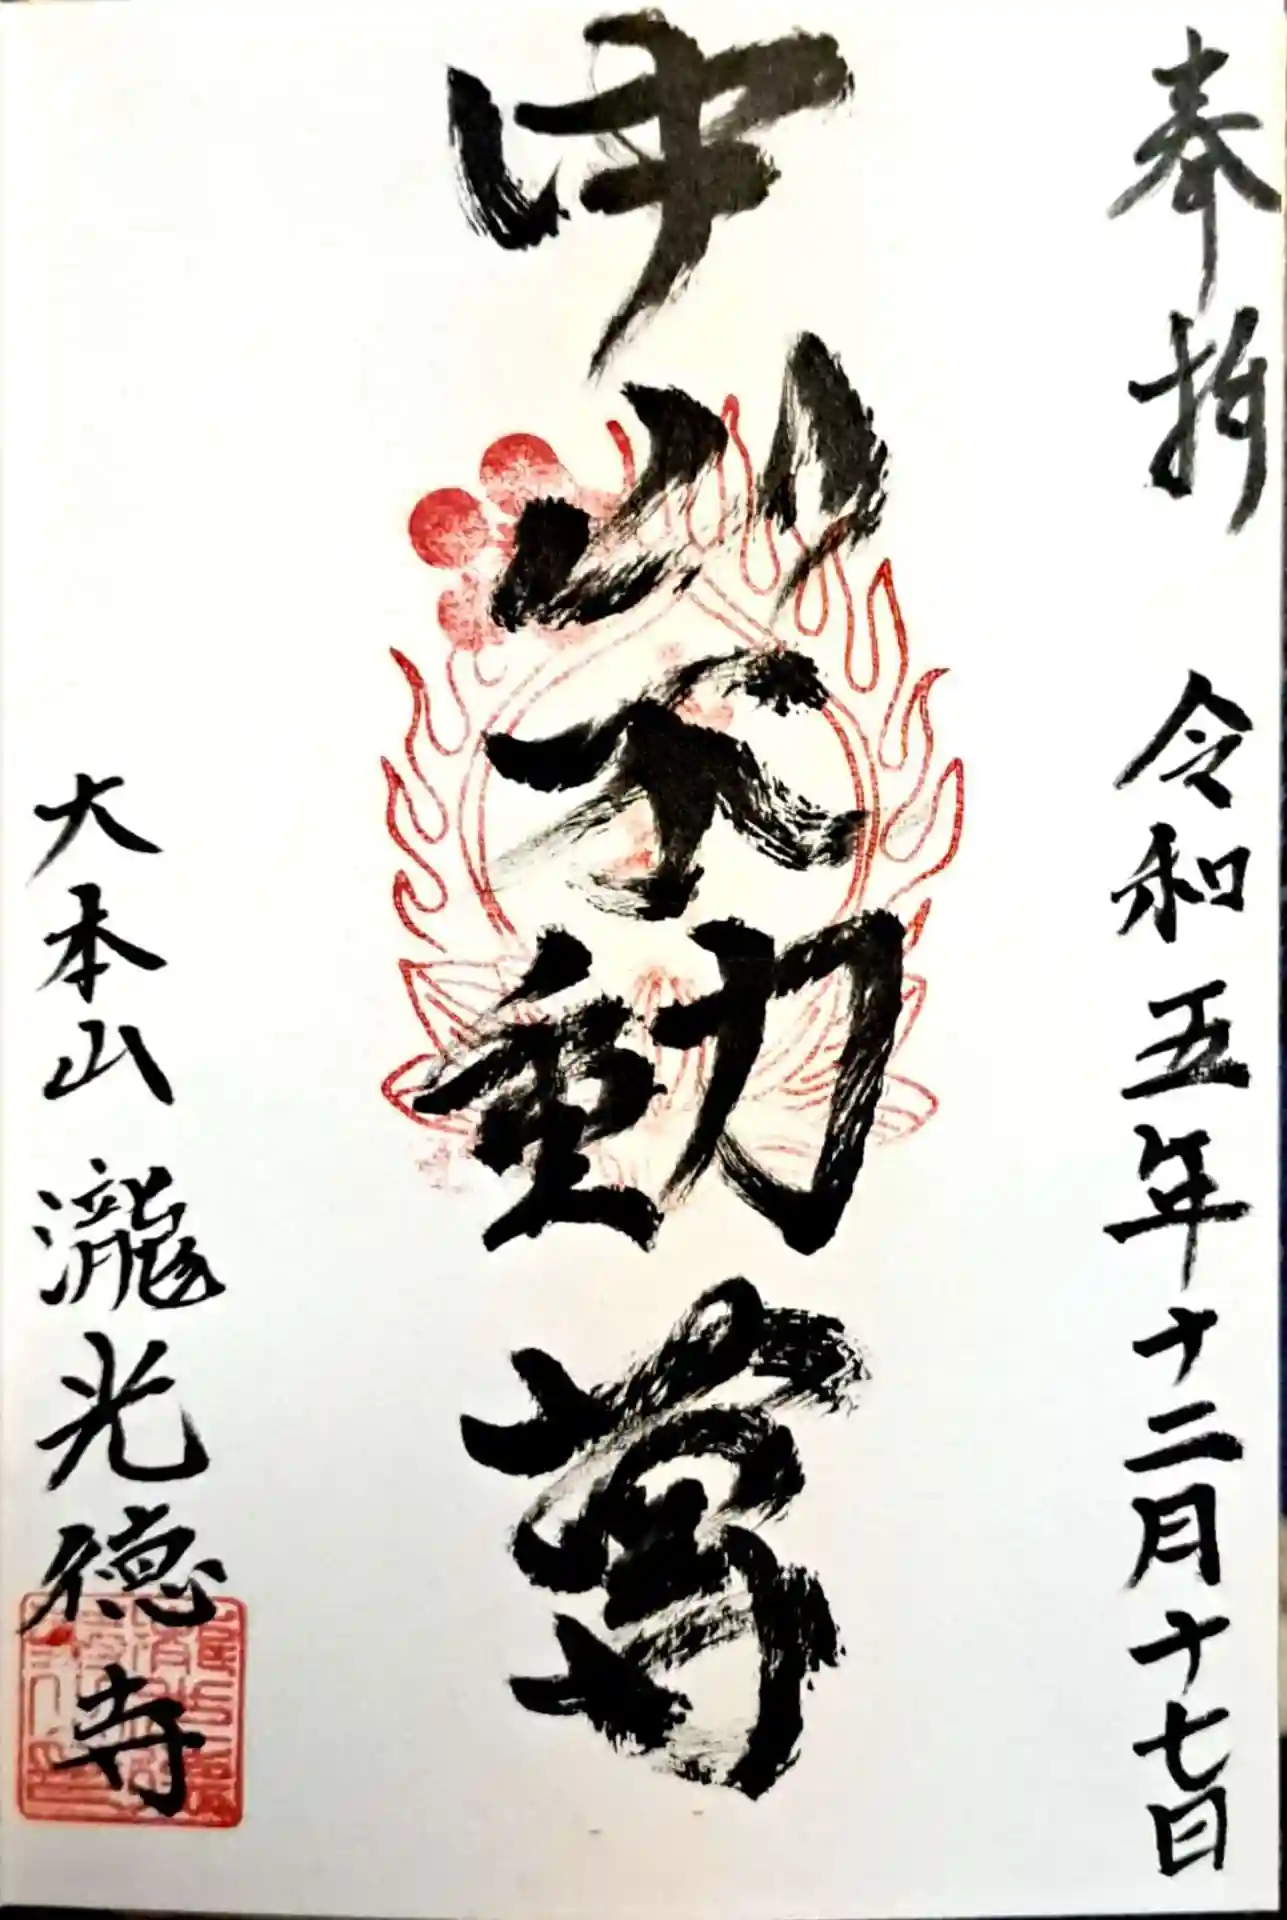 奉拝 令和五年十二月十七日
中山不動尊
大本山 瀧光徳寺